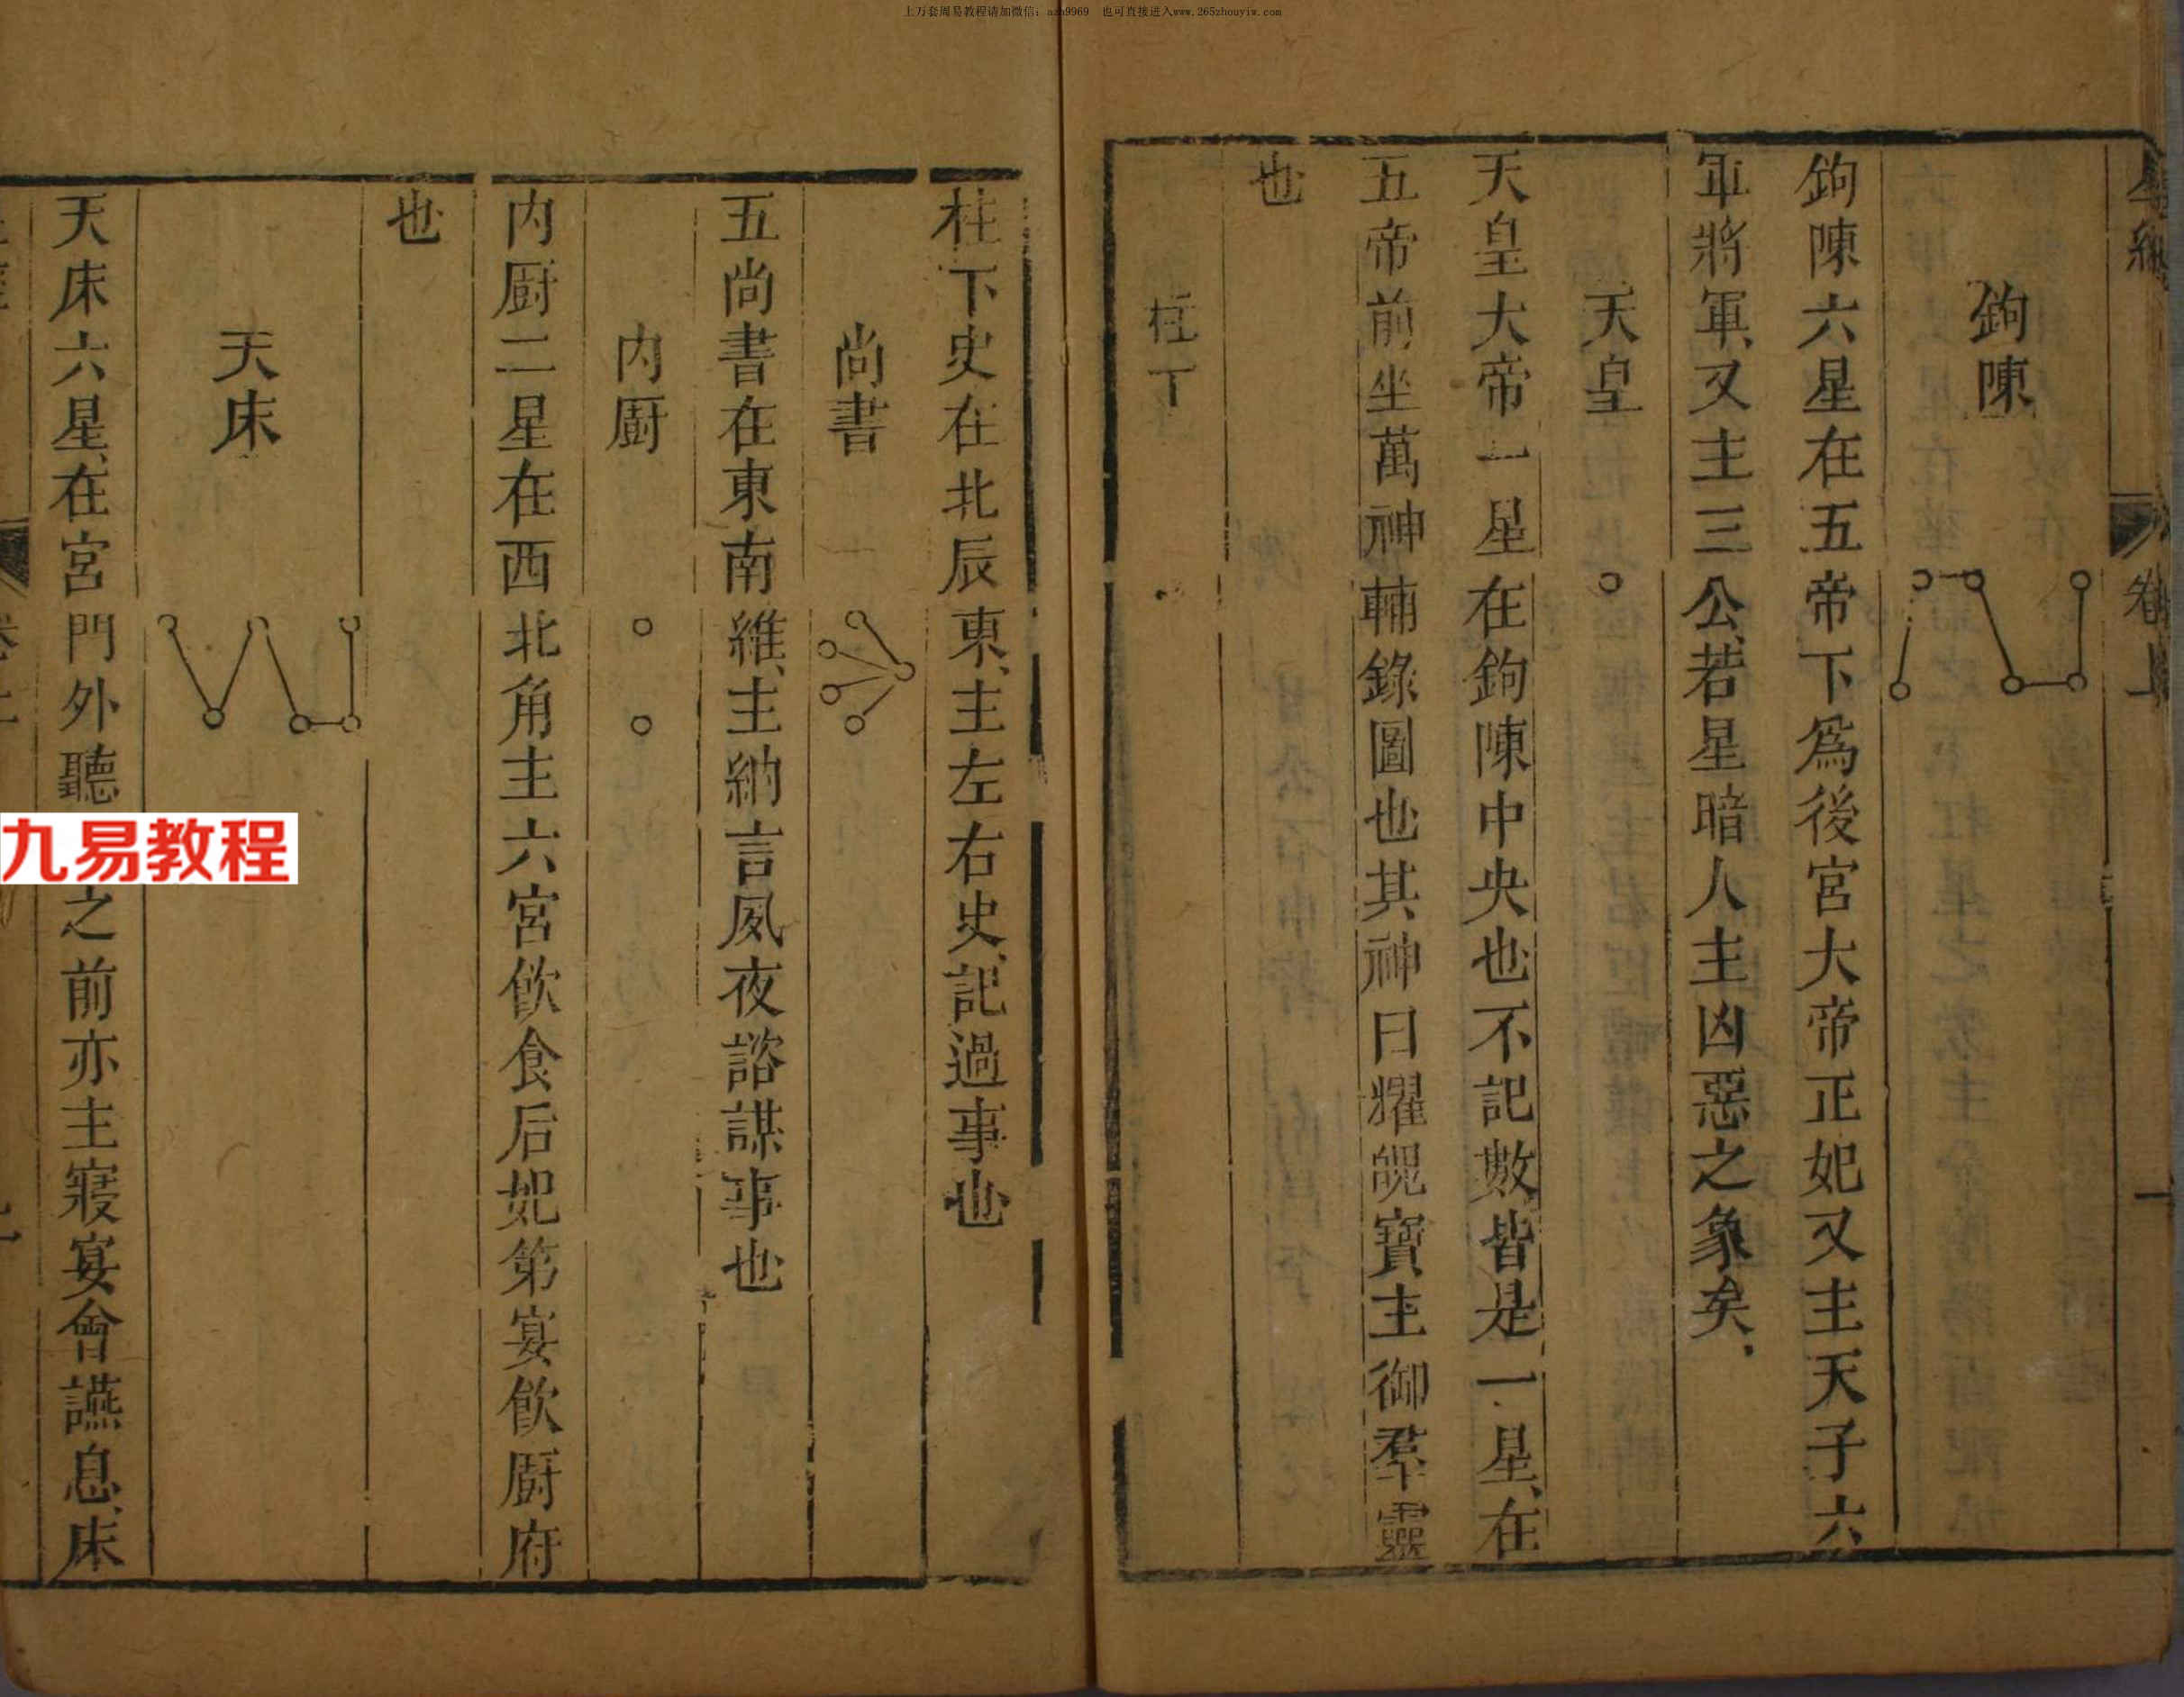 上万套周易教程请加微信：azn9969　也可直接进入www.265zhouyiw.com
星經　卷上
鉤陳
鉤陳六星在五帝下爲後宮大帝正妃又主天子六
軍將軍、又主三公、若星暗人主凶惡之象矣、
天皇
天皇大帝一星在鉤陳中央也不記數皆是一星、在
五帝前坐萬神輔錄圖也其神曰耀魄寶主御羣靈
也
柱下
柱下史在北辰東、主左右史、記過事也
尚書
五尚書在東南維、主納言夙夜諮謀事也
内厨
内厨二星在西北角主六宮飲食后妃第宴飲厨府
也
天床
天床六星、在宮門外聽
之前亦主寢宴會讌息、床
九易教程